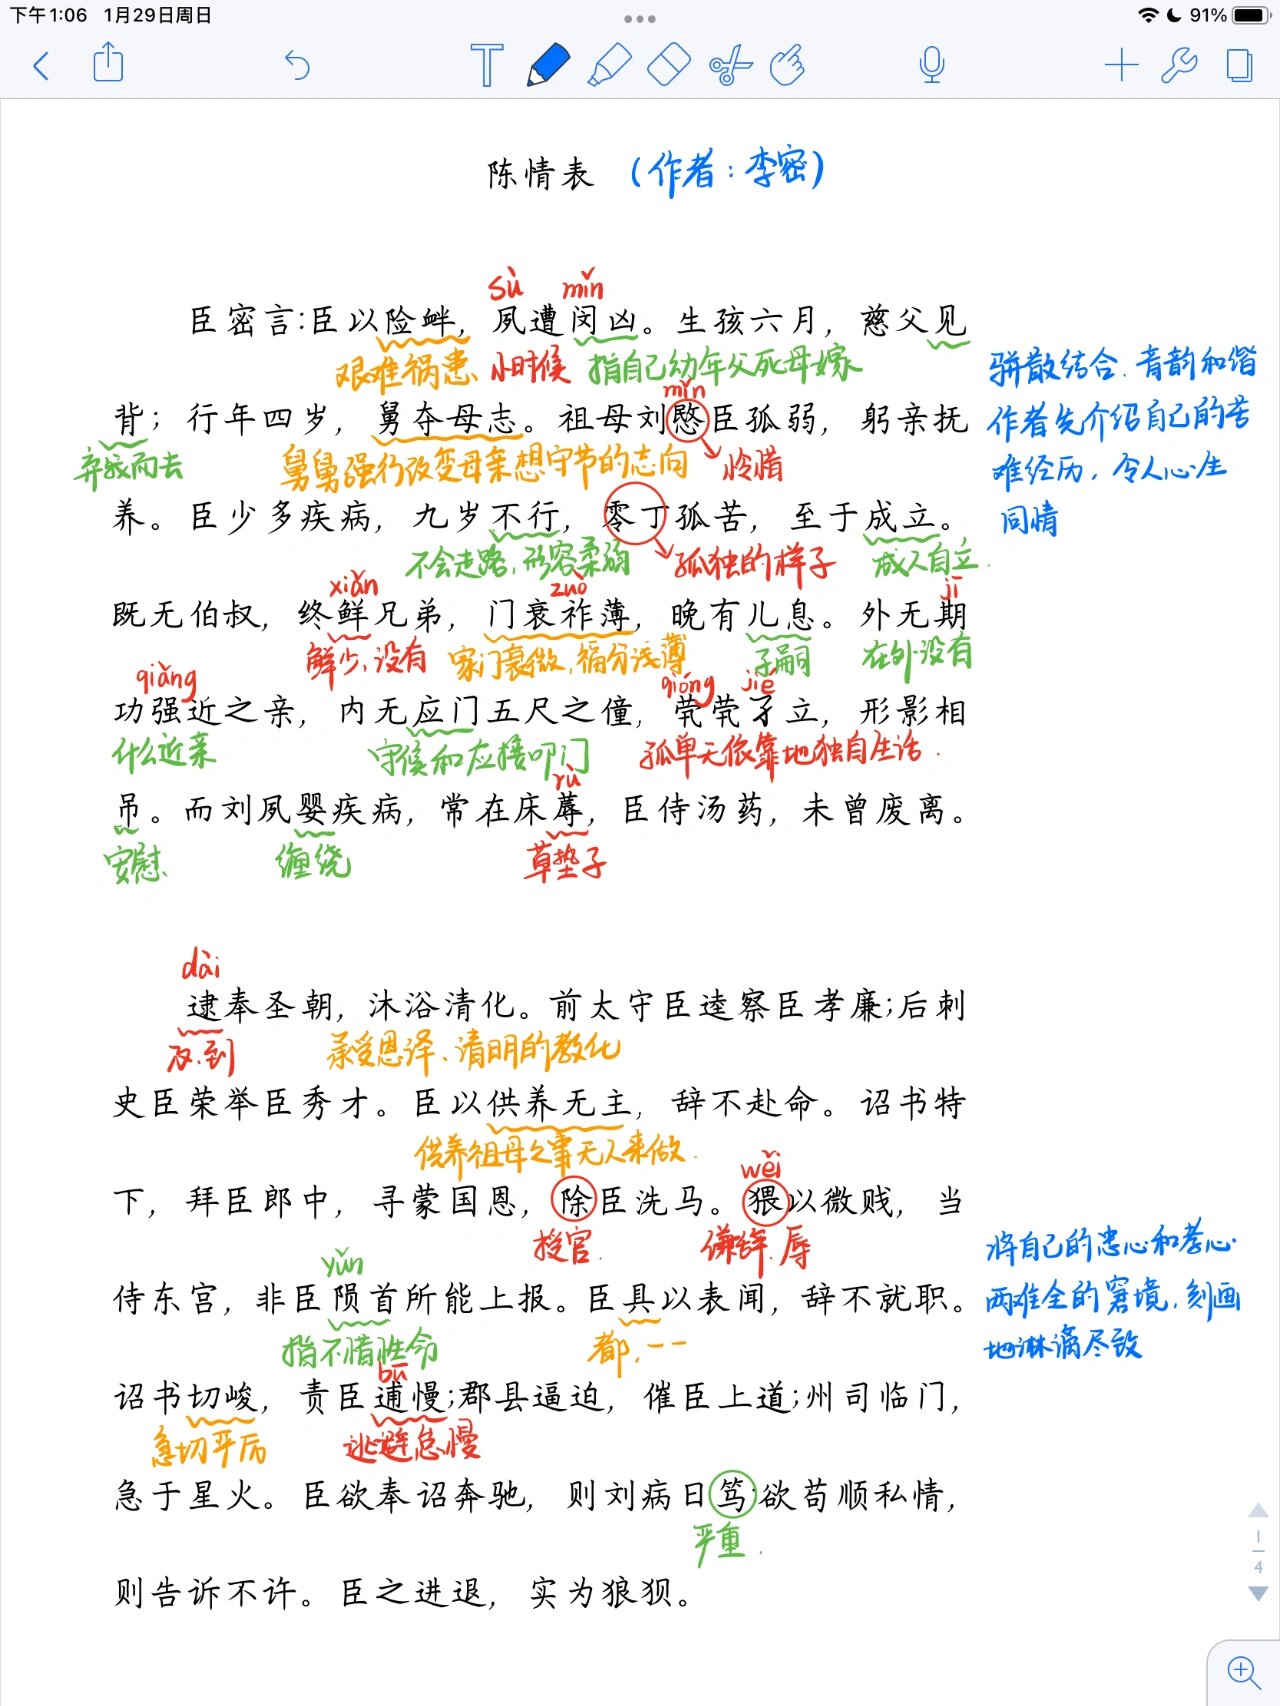 下午1:06 1月29日周日
91%
陈情表 (作者:李密)
sù mǐn
臣密言:臣以险衅，夙遭闵凶。生孩六月，慈父见
艰难祸患 小时候 指自己幼年父死母嫁
骈散结合.音韵和谐
mǐn
背；行年四岁，舅夺母志。祖母刘愍臣孤弱，躬亲抚
作者先介绍自己的苦
弃我而去 舅舅强行改变母亲想守节的志向 怜惜
难经历，令人心生
养。臣少多疾病，九岁不行，零丁孤苦，至于成立。
同情
不会走路.形容柔弱 孤独的样子 成人自立.
xiǎn zuò jī
既无伯叔，终鲜兄弟，门衰祚薄，晚有儿息。外无期
鲜少、没有 家门衰微.福分浅薄 子嗣 在外没有
qiǎng qióng jié
功强近之亲，内无应门五尺之僮，茕茕孑立，形影相
什么近亲 守候和应接叩门 孤单无依靠地独自生活.
rù
吊。而刘夙婴疾病，常在床蓐，臣侍汤药，未曾废离。
安慰、 缠绕 草垫子
dài
逮奉圣朝，沐浴清化。前太守臣逵察臣孝廉;后刺
及.到 承受恩泽、清明的教化
史臣荣举臣秀才。臣以供养无主，辞不赴命。诏书特
供养祖母之事无人来做.
wěi
下，拜臣郎中，寻蒙国恩，除臣洗马。猥以微贱，当
授官. 谦辞.辱
将自己的忠心和孝心
yǔn
侍东宫，非臣陨首所能上报。臣具以表闻，辞不就职。
两难全的窘境，刻画
指不惜性命 都.一一
地淋漓尽致
bū
诏书切峻，责臣逋慢;郡县逼迫，催臣上道;州司临门，
急切严厉 逃避怠慢
急于星火。臣欲奉诏奔驰，则刘病日笃;欲苟顺私情，
严重.
则告诉不许。臣之进退，实为狼狈。
1
4